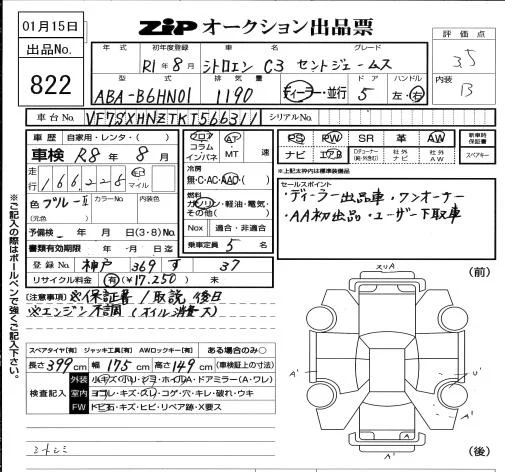 01月15日
出品No.
822
ZiP オークション出品票
評価点
3.5
内装
B
年式 初年度登録 車名 グレード
R1年8月 シトロエン C3 セントジェームス
型式 排気量 ドア ハンドル
ABA-B6HN01 1190 ディーラー・並行 5 左・右
車台No. VF7SXHNZTKT566311 シリアルNo.
車歴 自家用・レンタ( )
車検 R8年8月
走行 166,228 km マイル
色 ブルーII カラーNo. 内装色
(元色)
予備検 年 月 日(3・8)No.
書類有効期限 年 月 日迄
フロア コラム インパネ
AT・MT 速
冷房
無・C・AC・AAC( )
燃料
ガソリン・軽油・電気・その他( )
Nox 適合・非適合
乗車定員 5 名
登録No. 神戸 369 す 37
リサイクル料金 有(¥17,250) 無
PS PW SR 革 AW 新車時保証書
ナビ エアB Dチューナー(純・外含む) 社外ナビ 社外AW スペアキー
※上記太枠内は標準装備品
セールスポイント
・ディーラー出品車・ワンオーナー
・AA初出品・ユーザー下取車
[注意事項] ※保証書/取説 後日
※エンジン不調(オイル消費大)
スペアタイヤ[有] ジャッキ工具[有] AWロックキー[有] ある場合のみ○
長さ399cm 幅175cm 高さ149cm (車検証上の寸法)
検査記入
外装 小キズ・小凹・シミ・ホイルA・ドアミラー(A・ワレ)
室内 ヨゴレ・キズ・スレ・コゲ・穴・キレ・破れ・ウキ
FW トビ石・キズ・ヒビ・リペア跡・X要ス
※ご記入の際はボールペンで強くご記入下さい。
(前)
スリA
A'
U'
A'
A
(後)